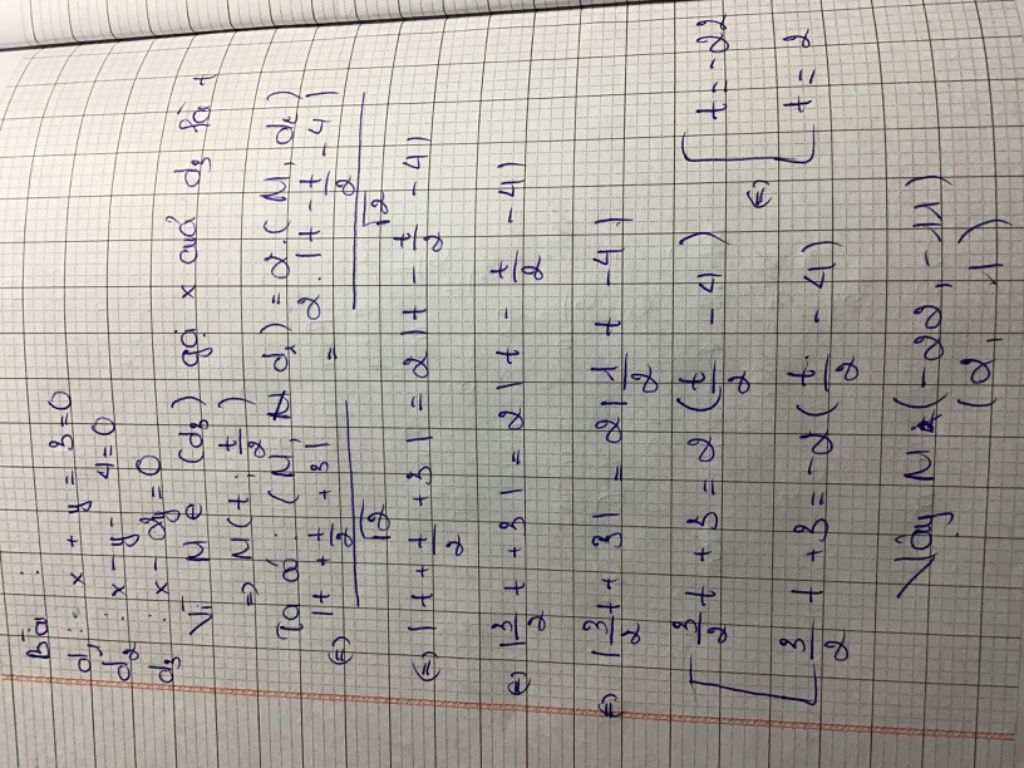 Bài :
d₁ : x + y + 3 = 0
d₂ : x - y - 4 = 0
d₃ : x - 2y = 0
Vì M ∈ (d₃) gọi x của d₃ là t
=> M (t ; t/2)
Ta có : (M, d₁) = 2.(M, d₂)
(=) |t + t/2 + 3| / √2 = 2.|t - t/2 - 4| / √2
(=) |t + t/2 + 3| = 2|t - t/2 - 4|
(=) |3/2 t + 3| = 2|t - t/2 - 4|
(=) |3/2 t + 3| = 2|1/2 t - 4|
[ 3/2 t + 3 = 2(t/2 - 4) (=) [ t = -22
3/2 t + 3 = -2(t/2 - 4) t = 2
Vậy M (-22, -11)
(2, 1)